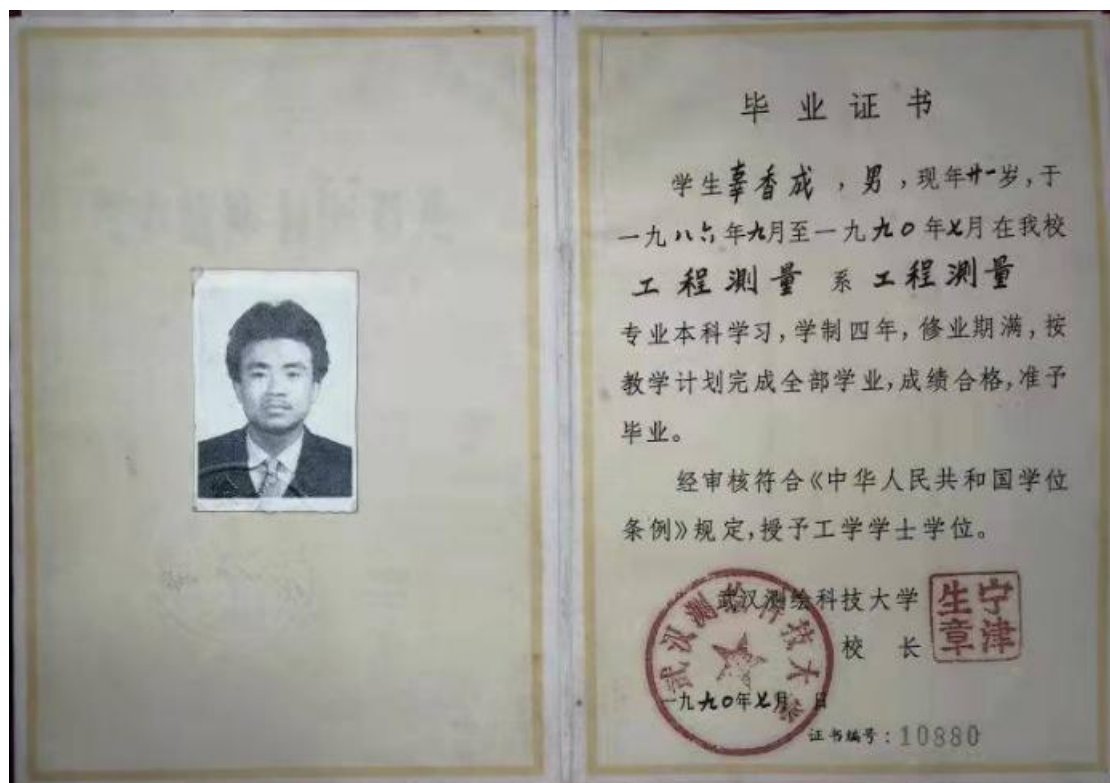 毕业证书
学生辜香成，男，现年廿一岁，于
一九八六年九月至一九九〇年七月在我校
工程测量系工程测量
专业本科学习，学制四年，修业期满，按
教学计划完成全部学业，成绩合格，准予
毕业。
经审核符合《中华人民共和国学位
条例》规定，授予工学学士学位。
武汉测绘科技大学
校长
宁津生章
武汉测绘科技大学
一九九〇年七月 日
证书编号：10880